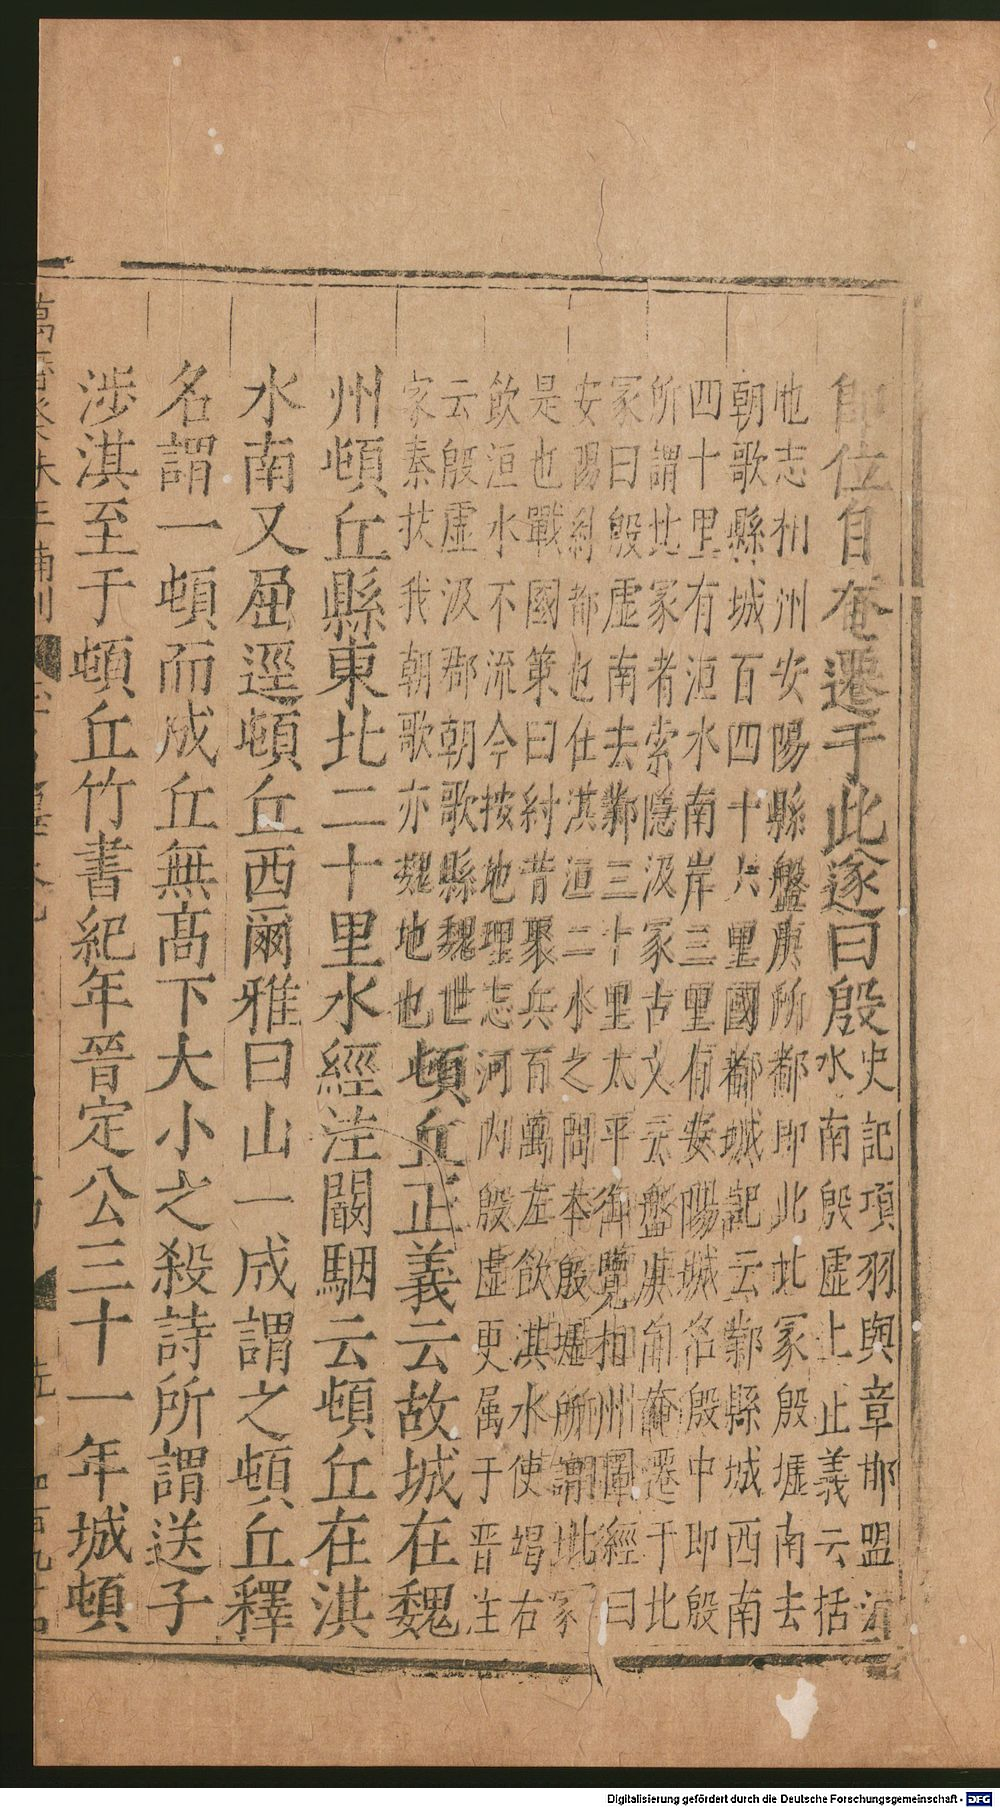 即位自奄遷于此遂曰殷史記項羽與章邯盟洹
水南殷虛上正義云括
地志相州安陽縣盤庚所都即北冢殷墟南去
朝歌縣城百四十六里國都城記云鄴縣城西南
四十里有洹水南岸三里有安陽城名殷中即殷
所謂北冢者索隱汲冢古文云盤庚自奄遷于北
冢曰殷虛南去鄴三十里太平御覽相州圖經曰
安陽紂都也在淇洹二水之間本殷墟所謂北冢
是也戰國策曰紂昔聚兵百萬左飲淇水使竭右
飲洹水不流今按地理志河內殷虛更属于晋注
云殷虛汲郡朝歌縣魏世
家秦扶我朝歌亦魏地也頓丘正義云故城在魏
州頓丘縣東北二十里水經注闞駰云頓丘在淇
水南又屈逕頓丘西爾雅曰山一成謂之頓丘釋
名謂一頓而成丘無高下大小之殺詩所謂送子
涉淇至于頓丘竹書紀年晉定公三十一年城頓
Digitalisierung gefördert durch die Deutsche Forschungsgemeinschaft - DFG